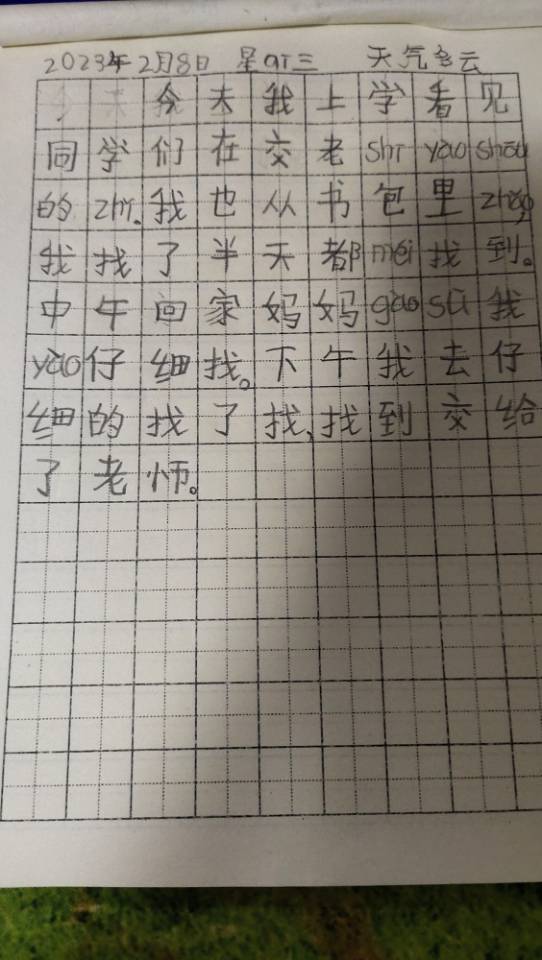 2023年2月8日 星qī三 天气多云
今天我上学看见
同学们在交老shī yào shōu
的zhǐ。我也从书包里zhǎo,
我找了半天都méi找到。
中午回家妈妈gào sù我
yào仔细找。下午我去仔
细的找了找,找到交给
了老师。